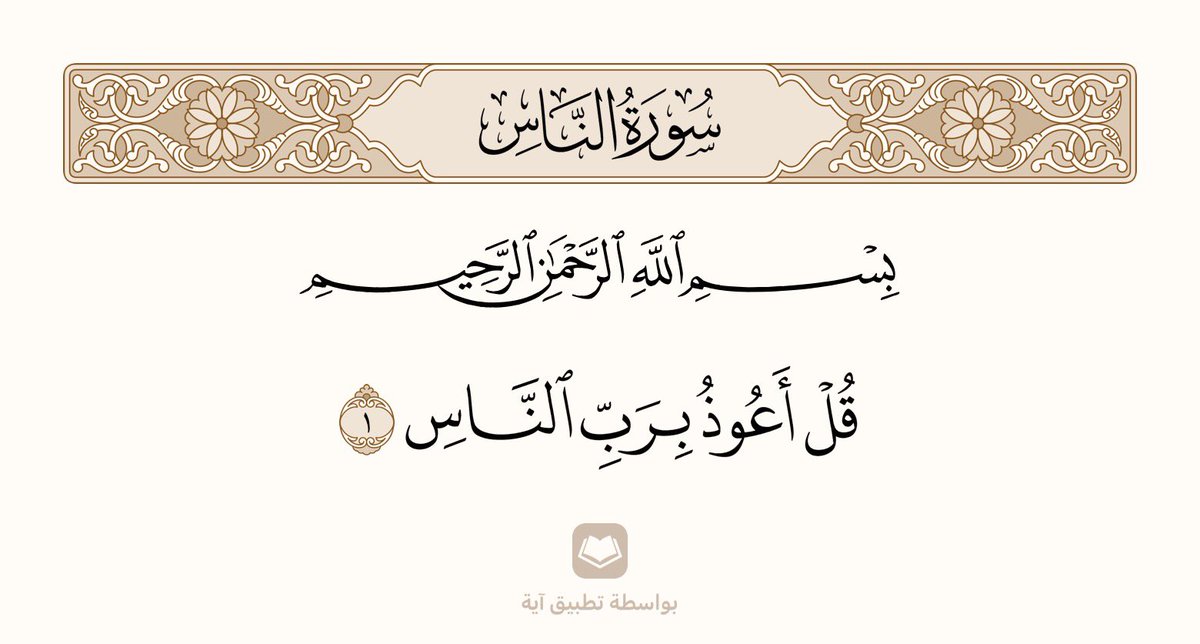 سُورَةُ النَّاسِ
بِسْمِ ٱللَّهِ ٱلرَّحْمَٰنِ ٱلرَّحِيمِ
قُلْ أَعُوذُ بِرَبِّ ٱلنَّاسِ ١
بواسطة تطبيق آية